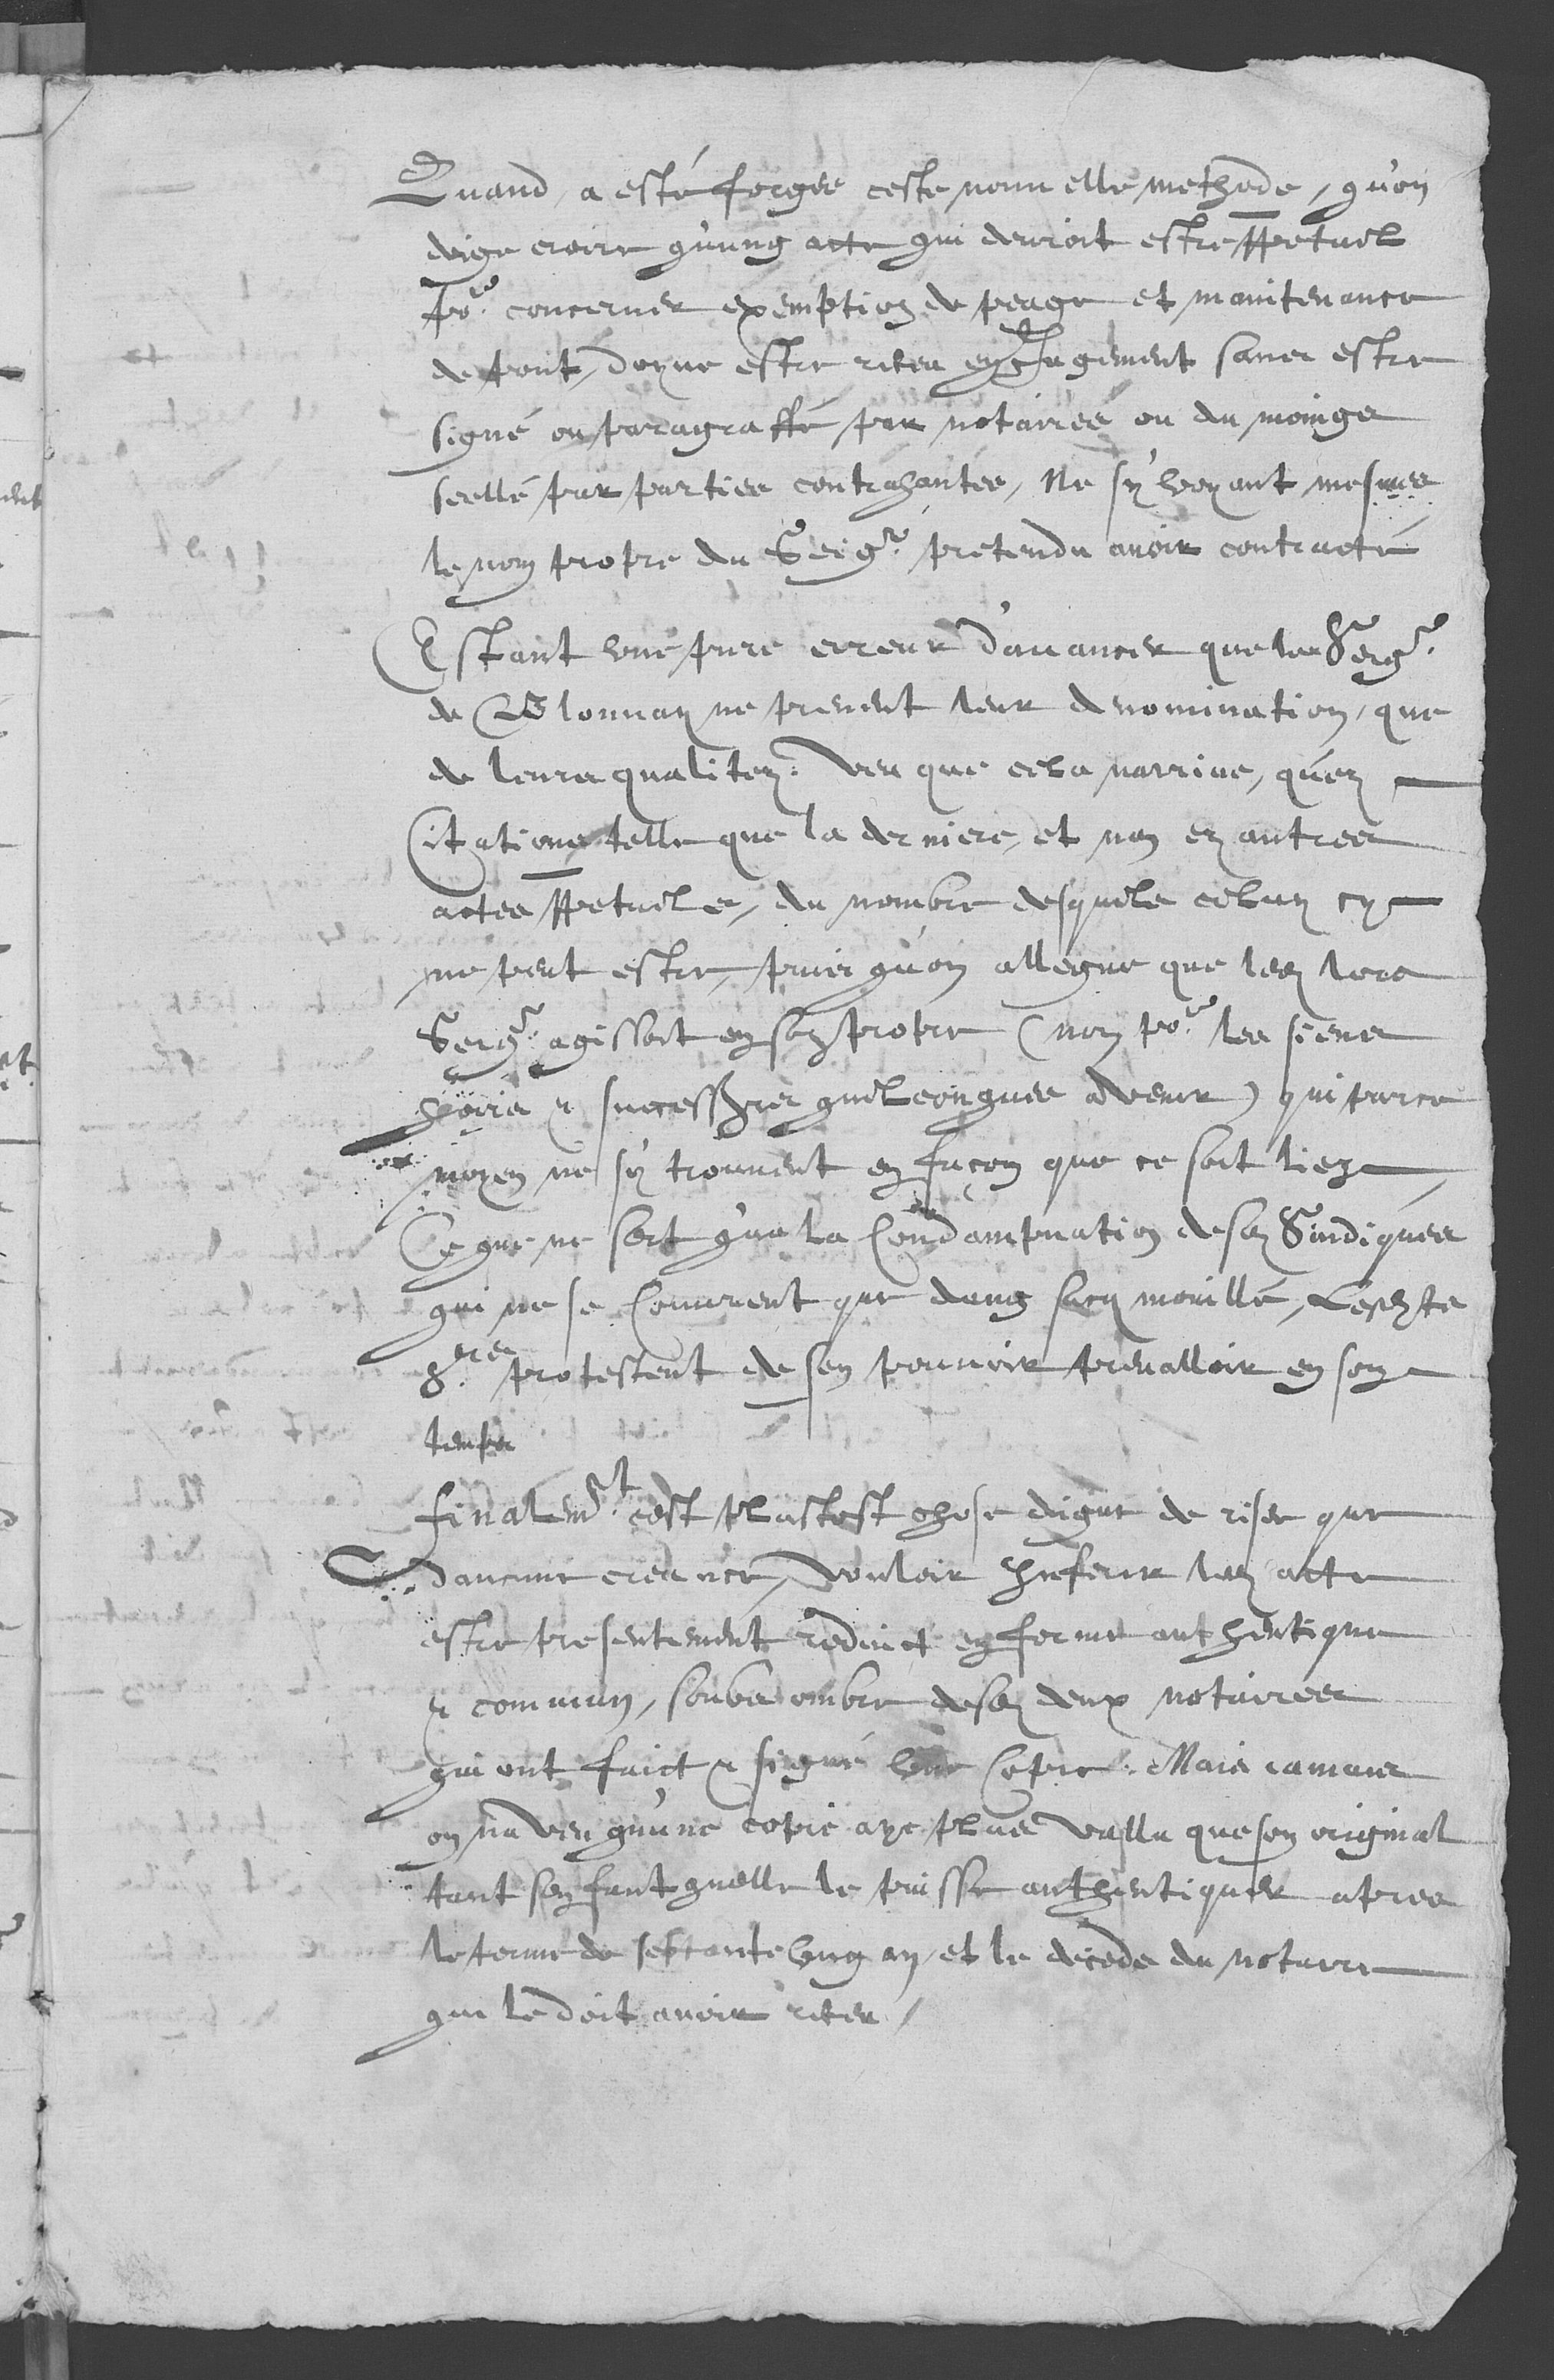 Quand a esté forgee ceste nouuelle methode, qu'on
doige croire qu'ung acte qui deuroit estre ppetuel
po.r concerner exemption de peage et maintenance
de pont, doyue estre receu en Jugement sans estre
signé ou paragraffé par notaires ou du moings
seellé par parties contrahantes, Ne s'y voyant mesmes
le nom propre du Seigr. pretendu auoir contracté
Estant vne pure erreur d'auancer que les Seigrs.
de Blonnay ne prenent leur denomination, que
de leurs qualitez. Veu que cela narriue, qu'en
Citations telle que la derniere, et non en autres
actes ppetuels, du nombre desquels celuy cy
ne peut estre, puis qu'on allegue que led lors
Seigr. agissoit en son propre (non po.r les siens
hoirs & successeurs quelconques advenir) qui par ce
moyen ne s'y trouuent en façon que ce soit liez
Ce que ne sert qu'a la Condampnation desd Sindiques
qui ne se Couurent que dung sacq mouillé, Lesdts
Srs protestent de sen pouuoir preualloir en son
temps
finalemt. cest plustost chose digne de risee que
daucune creance, vouloir Inferer led acte
estre presentement reduict en forme authentique
& commun, soubs ombre desd deux notaires
qui ont faict & signé vne Copie. Mais iamais
on na veu qu'une copie aye plus vallu que son original
tant sen faut quelle le puisse authentiquer apres
le terme de septante vng an, et le decede du notaire
qui le doit auoir receu /